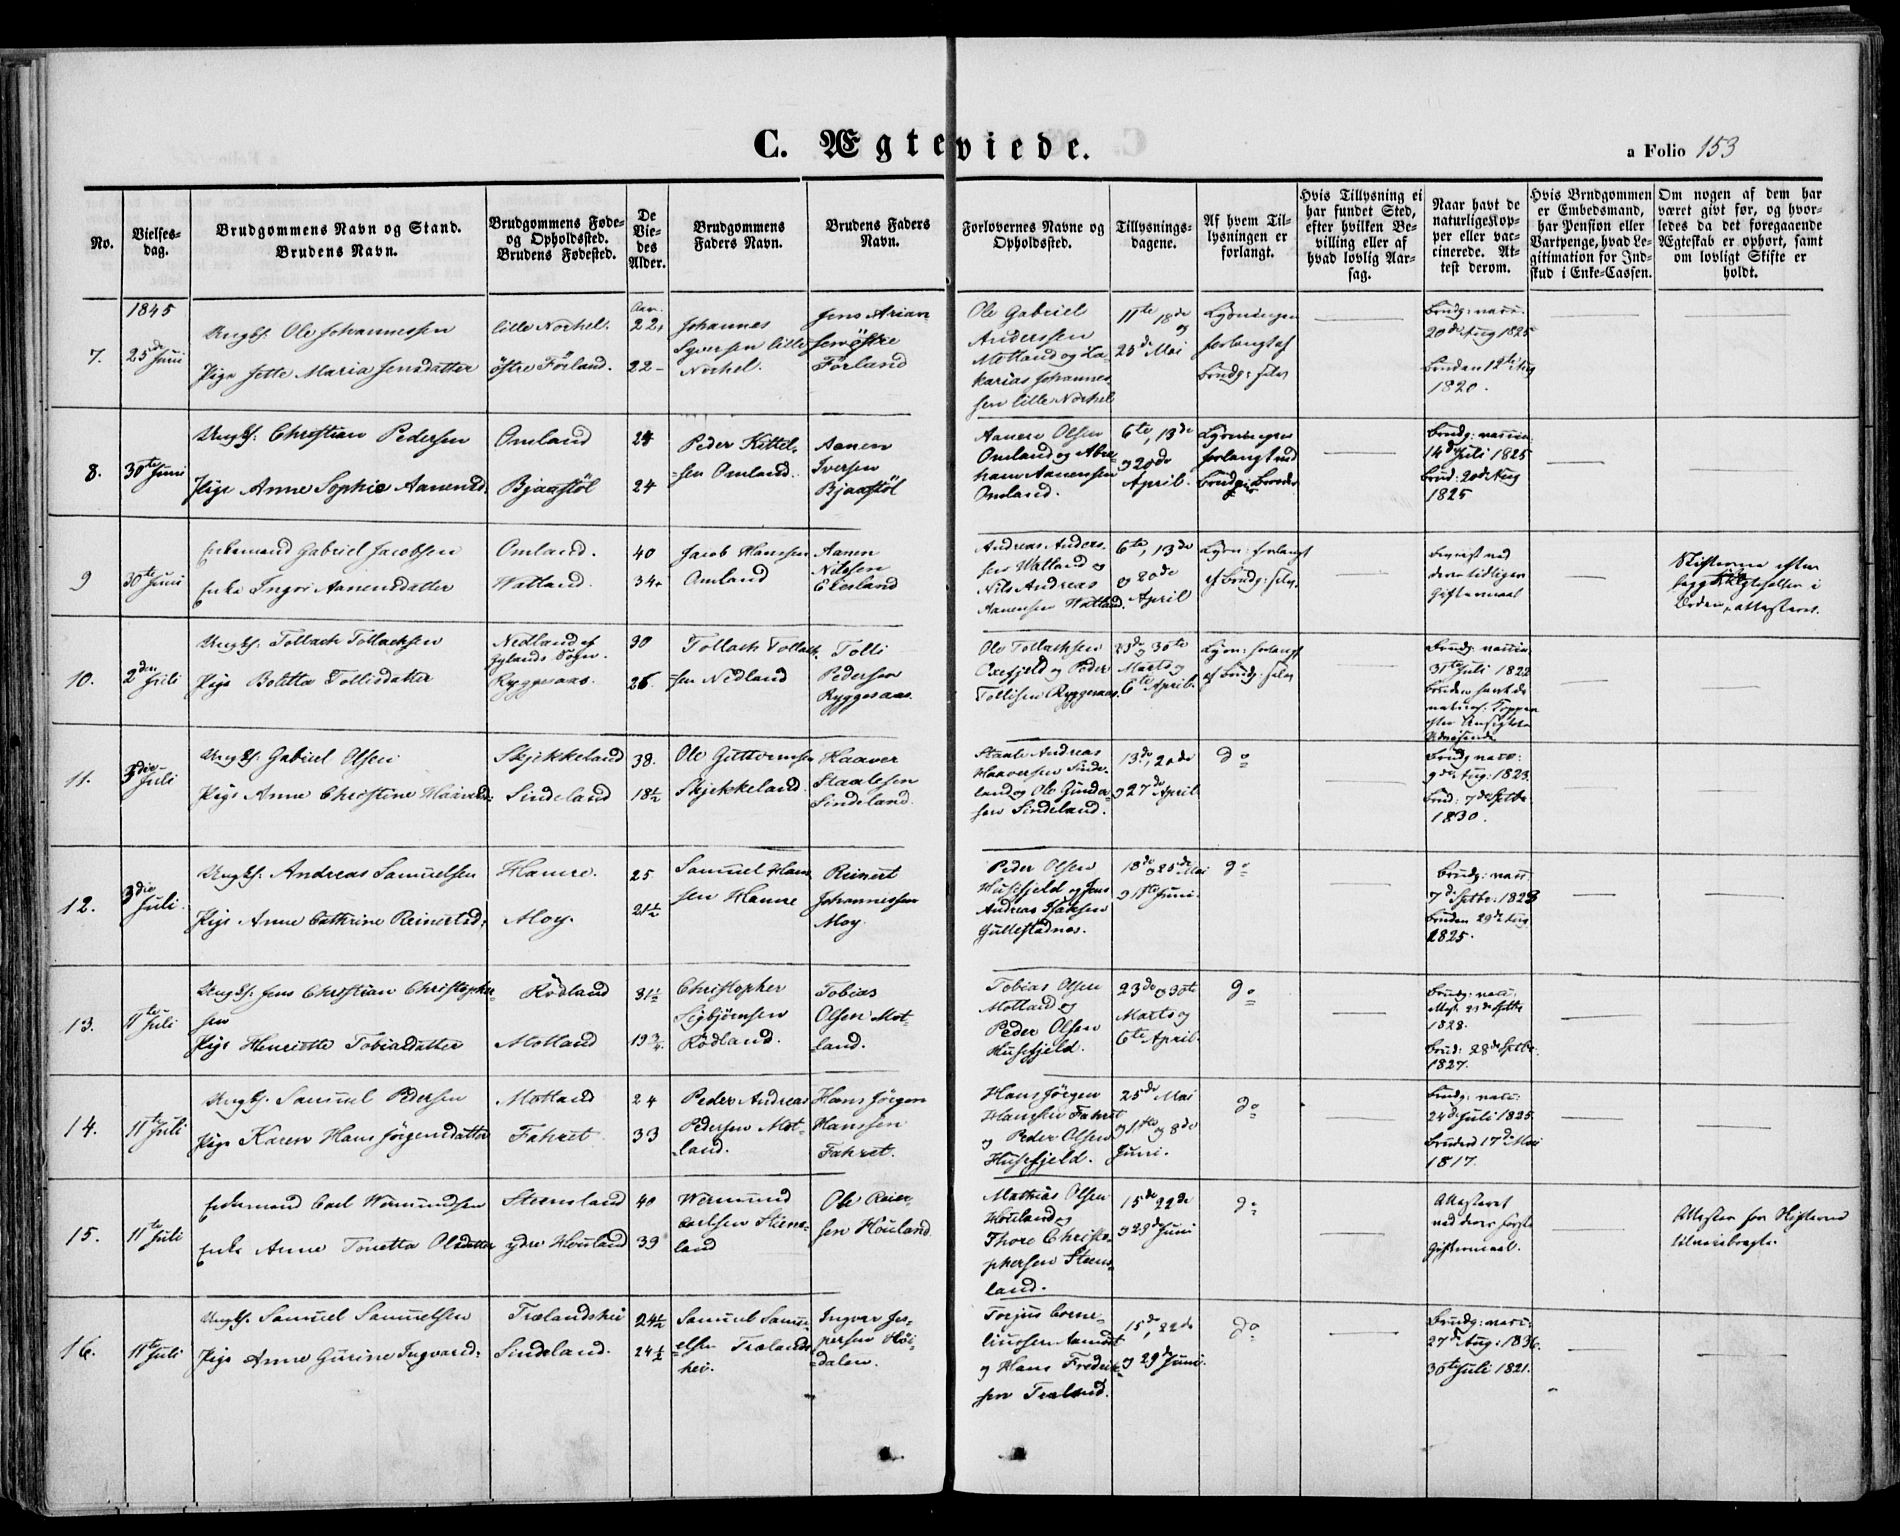 C. Ægteviede.
a Folio 153
No.
Vielses-
dag.
Brudgommens Navn og Stand.
Brudens Navn.
Brudgommens Føde-
og Opholdssted.
Brudens Fødested.
De
Vie-
des
Alder.
Brudgommens
Faders Navn.
Brudens Faders
Navn.
Forlovernes Navne og
Opholdssted.
Tillysnings-
dagene.
Af hvem Til-
lysningen er
forlangt.
Hvis Tillysning ei
har fundet Sted,
efter hvilken Be-
villing eller af
hvad lovlig Aar-
sag.
Naar havt de
naturlige Kop-
per eller vac-
cinerede. At-
test derom.
Hvis Brudgommen
er Embedsmand,
har Pension eller
Vartpenge, hvad Le-
gitimation for Ind-
skud i Enke-Cassen.
Om nogen af dem har
været givt før, og hvor-
ledes da det foregaaende
Ægteskab er ophørt, samt
om lovligt Skifte er
holdt.
1845
7.
25de Juni
Ungk. Ole Johannessen
Pige Jette Maria Jensdatter
lille Norhel.
östre Förland.
Aar.
22
22
Johannes
Syversen lille
Norhel.
Jens Arian-
sen östre
Förland
Ole Gabriel
Anderssen
Motland og Za-
karias Johannes-
sen lille Norhel
11te 18de
og
25de Mai
Lysningen
forlangt af
Brudg: selv
Brudg: vacc.
20de Aug 1825
Bruden 12te Aug
1820.
8.
30te Juni
Ungk. Christian Pedersen
Pige Anne Sophie Aanensd.
Omland
Bjaastöl
24
24
Peder Kittel-
sen Omland.
Aanen
Iversen
Bjaastöl
Aanen Olsen
Omland og Abra-
ham Aanensen
Omland.
6te, 13de
og 20de
April.
Lysningen
forlangt ved
Brudgs Broder
Brudg: vaccin.
14de Juli 1825
Brud: 20de Aug
1825
9
30te Juni
Enkemand Gabriel Jacobsen
Enke Inger Aanensdatter
Omland.
Watland.
40
34
Jacob Hanssen
Omland
Aanen
Nilsen
Eiesland
Andreas Anders-
sen Watland og
Nils Andreas
Aanensen Watland.
6te, 13de
og 20de
April
Lysn: forlangt
af Brudg: selv.
Beviist ved
deres tidligere
Giftermaal
Skifterne efter
begge Ægtefæller i
Orden, attesteret.
10.
2den Juli
Ungk. Tollach Tollachsen
Pige Bolette Tollisdatter
Nedland af
Gylands Sogn.
Ryggesaas.
30
26.
Tollach Tollach-
sen Nedland
Tolli
Pedersen
Ryggesaas.
Ole Tollachsen
Oxefjeld og Peder
Tollisen Ryggesaas.
23de og 30te
Marts og
6te April.
Lysn: forlangt
af Brudg: selv
Brudg: vaccin.
31te Juli 1822
Bruden havt de
naturl: Kopper
efter Ansigtets
Udvisende
11.
3die Juli
Ungk. Gabriel Olsen
Pige Anne Christine Haaversd:
Skjekkeland
Sindeland
38.
18½
Ole Guttormsen
Skjekkeland.
Haaver
Staalesen
Sindeland.
Staale Andreas
Haaversen Sinde-
land og Ole Gunder-
sen Sindeland.
13de, 20de
og 27de April.
do
Brudg vacc:
9de Aug: 1823.
Brud: 7de Sptbr.
1830.
12.
3die Juli.
Ungk. Andreas Samuelsen
Pige Anne Cathrine Reinertsd:
Hamre.
Moy.
25
21½
Samuel Han-
sen Hamre
Reinert
Johannessen
Moy.
Peder Olsen
Husefjeld og Jens
Andreas Isaksen
Gullestadnes.
18de og 25de Mai
og 1ste Juni.
do
Brudg: vacc
7de Sptbr: 1823
Bruden 29de Aug
1825.
13.
11te Juli
Ungk. Jens Christian Christopher-
sen
Pige Henriette Tobiasdatter
Rödland
Motland
31½
19¾
Christopher
Sigbjørnsen
Rödland.
Tobias
Olsen Mot-
land.
Tobias Olsen
Motland og
Peder Olsen
Husefjeld.
23de og 30te
Marts og
6te April.
do
Brudg: vacc:
1828.
Brud: 28de Sptbr.
1827.
14.
11te Juli
Ungk. Samuel Pedersen
Pige Karen Hans Jörgensdatter
Motland
Fahret
24
33
Peder Andreas
Pedersen Mot-
land.
Hans Jörgen
Hanssen
Fahret.
Hans Jörgen
Hanssen Fahret
og Peder Olsen
Husefjeld.
25de Mai
og 1ste og 8de
Juni.
do
Brudg: vacc:
24de Juli 1825.
Bruden 17de Mai
1817.
15.
11te Juli
Enkemand Carl Wermundsen
Enke Anne Tonetta Olsdatter
Steensland
ydre Houland
40
39
Wermund
Carlsen Stens-
land
Ole Reier-
sen Houland.
Mathias Olsen
Houland og
Thore Christo-
phersen Steens-
land.
15de 22de
og 29de Juni
do
Attesteret
ved deres første
Giftermaal.
Attester for Skifterne
tilveiebragte.
16.
11te Juli
Ungk. Samuel Samuelsen
Pige Anne Gurine Ingvarsd:
Trælandshei
Sindeland.
24½
24½
Samuel Samu-
elsen Trælands-
hei.
Ingvar Jes-
persen Höi-
dalen.
Torjus Corne-
liussen Aamodt
og Hans Fredrik-
sen Træland.
15de, 22de
og 29de Juni.
do
Brudg: vacc:
27de Aug: 1836.
30te Juli 1821.